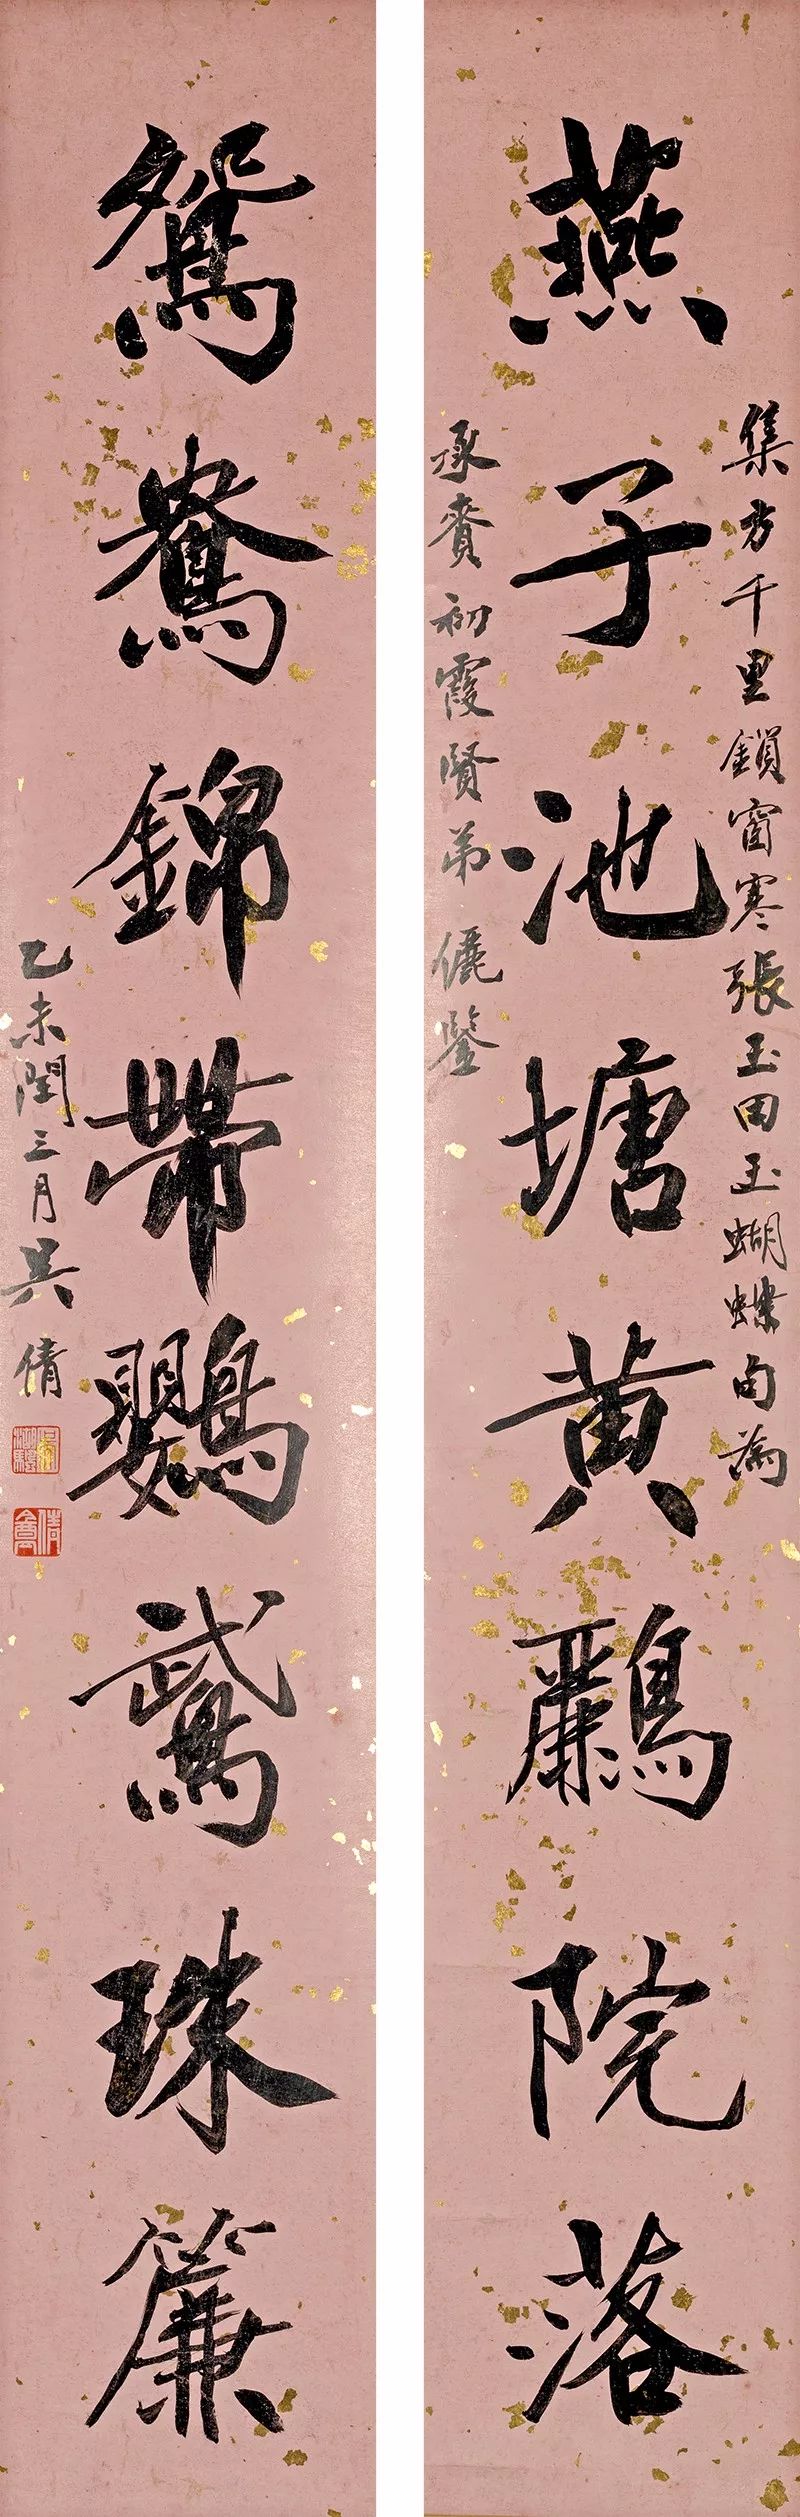 集方千里鎖窗寒張玉田玉蝴蝶句為
燕子池塘黄鸝院落
承賚初霞賢弟儷鑒
鴛鴦錦帶鸚鵡珠簾
乙未閏三月吴倩
吴湖颿
倩盦